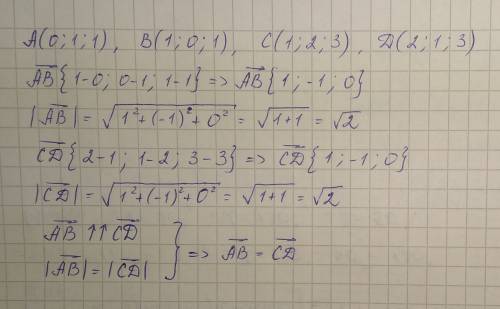 A(0; 1; 1), B(1; 0; 1), C(1; 2; 3), D(2; 1; 3)
A̅B̅{1-0; 0-1; 1-1} => A̅B̅{1; -1; 0}
|A̅B̅| = √(1²+(-1)²+0²) = √(1+1) = √2
C̅D̅{2-1; 1-2; 3-3} => C̅D̅{1; -1; 0}
|C̅D̅| = √(1²+(-1)²+0²) = √(1+1) = √2
A̅B̅ ↑↑ C̅D̅
|A̅B̅| = |C̅D̅| } => A̅B̅ = C̅D̅